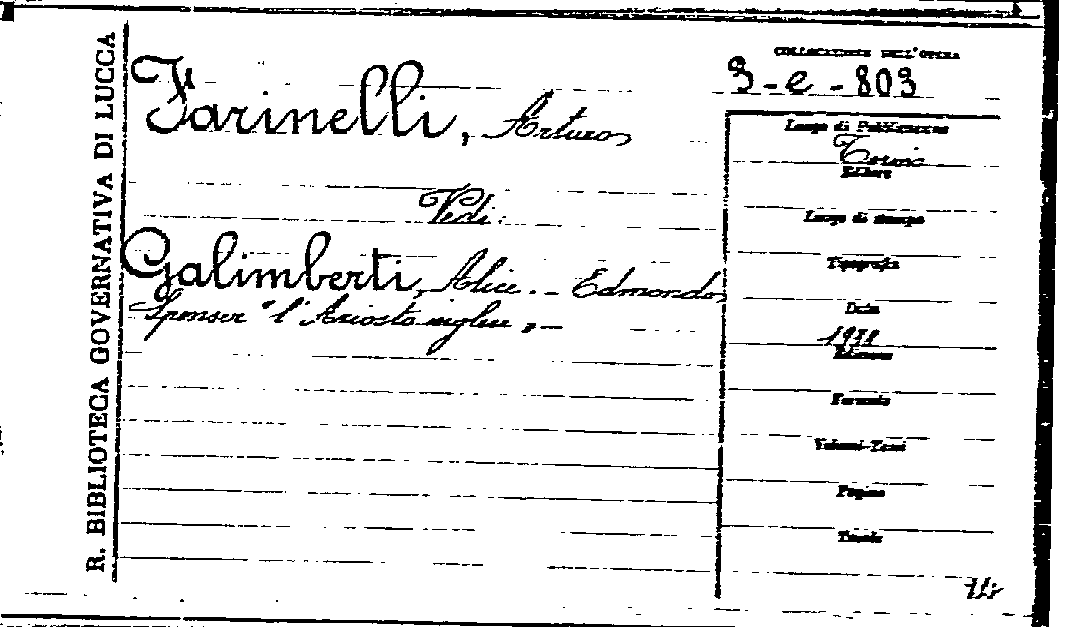 R. BIBLIOTECA GOVERNATIVA DI LUCCA
Farinelli, Arturo
Vedi:
Galimberti, Alice. - Edmondo
Spenser "l'Ariosto inglese„ -
COLLOCAZIONE DELL'OPERA
3-e-803
Luogo di Pubblicazione
Torino
Editore
Luogo di stampa
Tipografia
Data
1938
Edizione
Formato
Volumi-Tomi
Pagine
Tavole